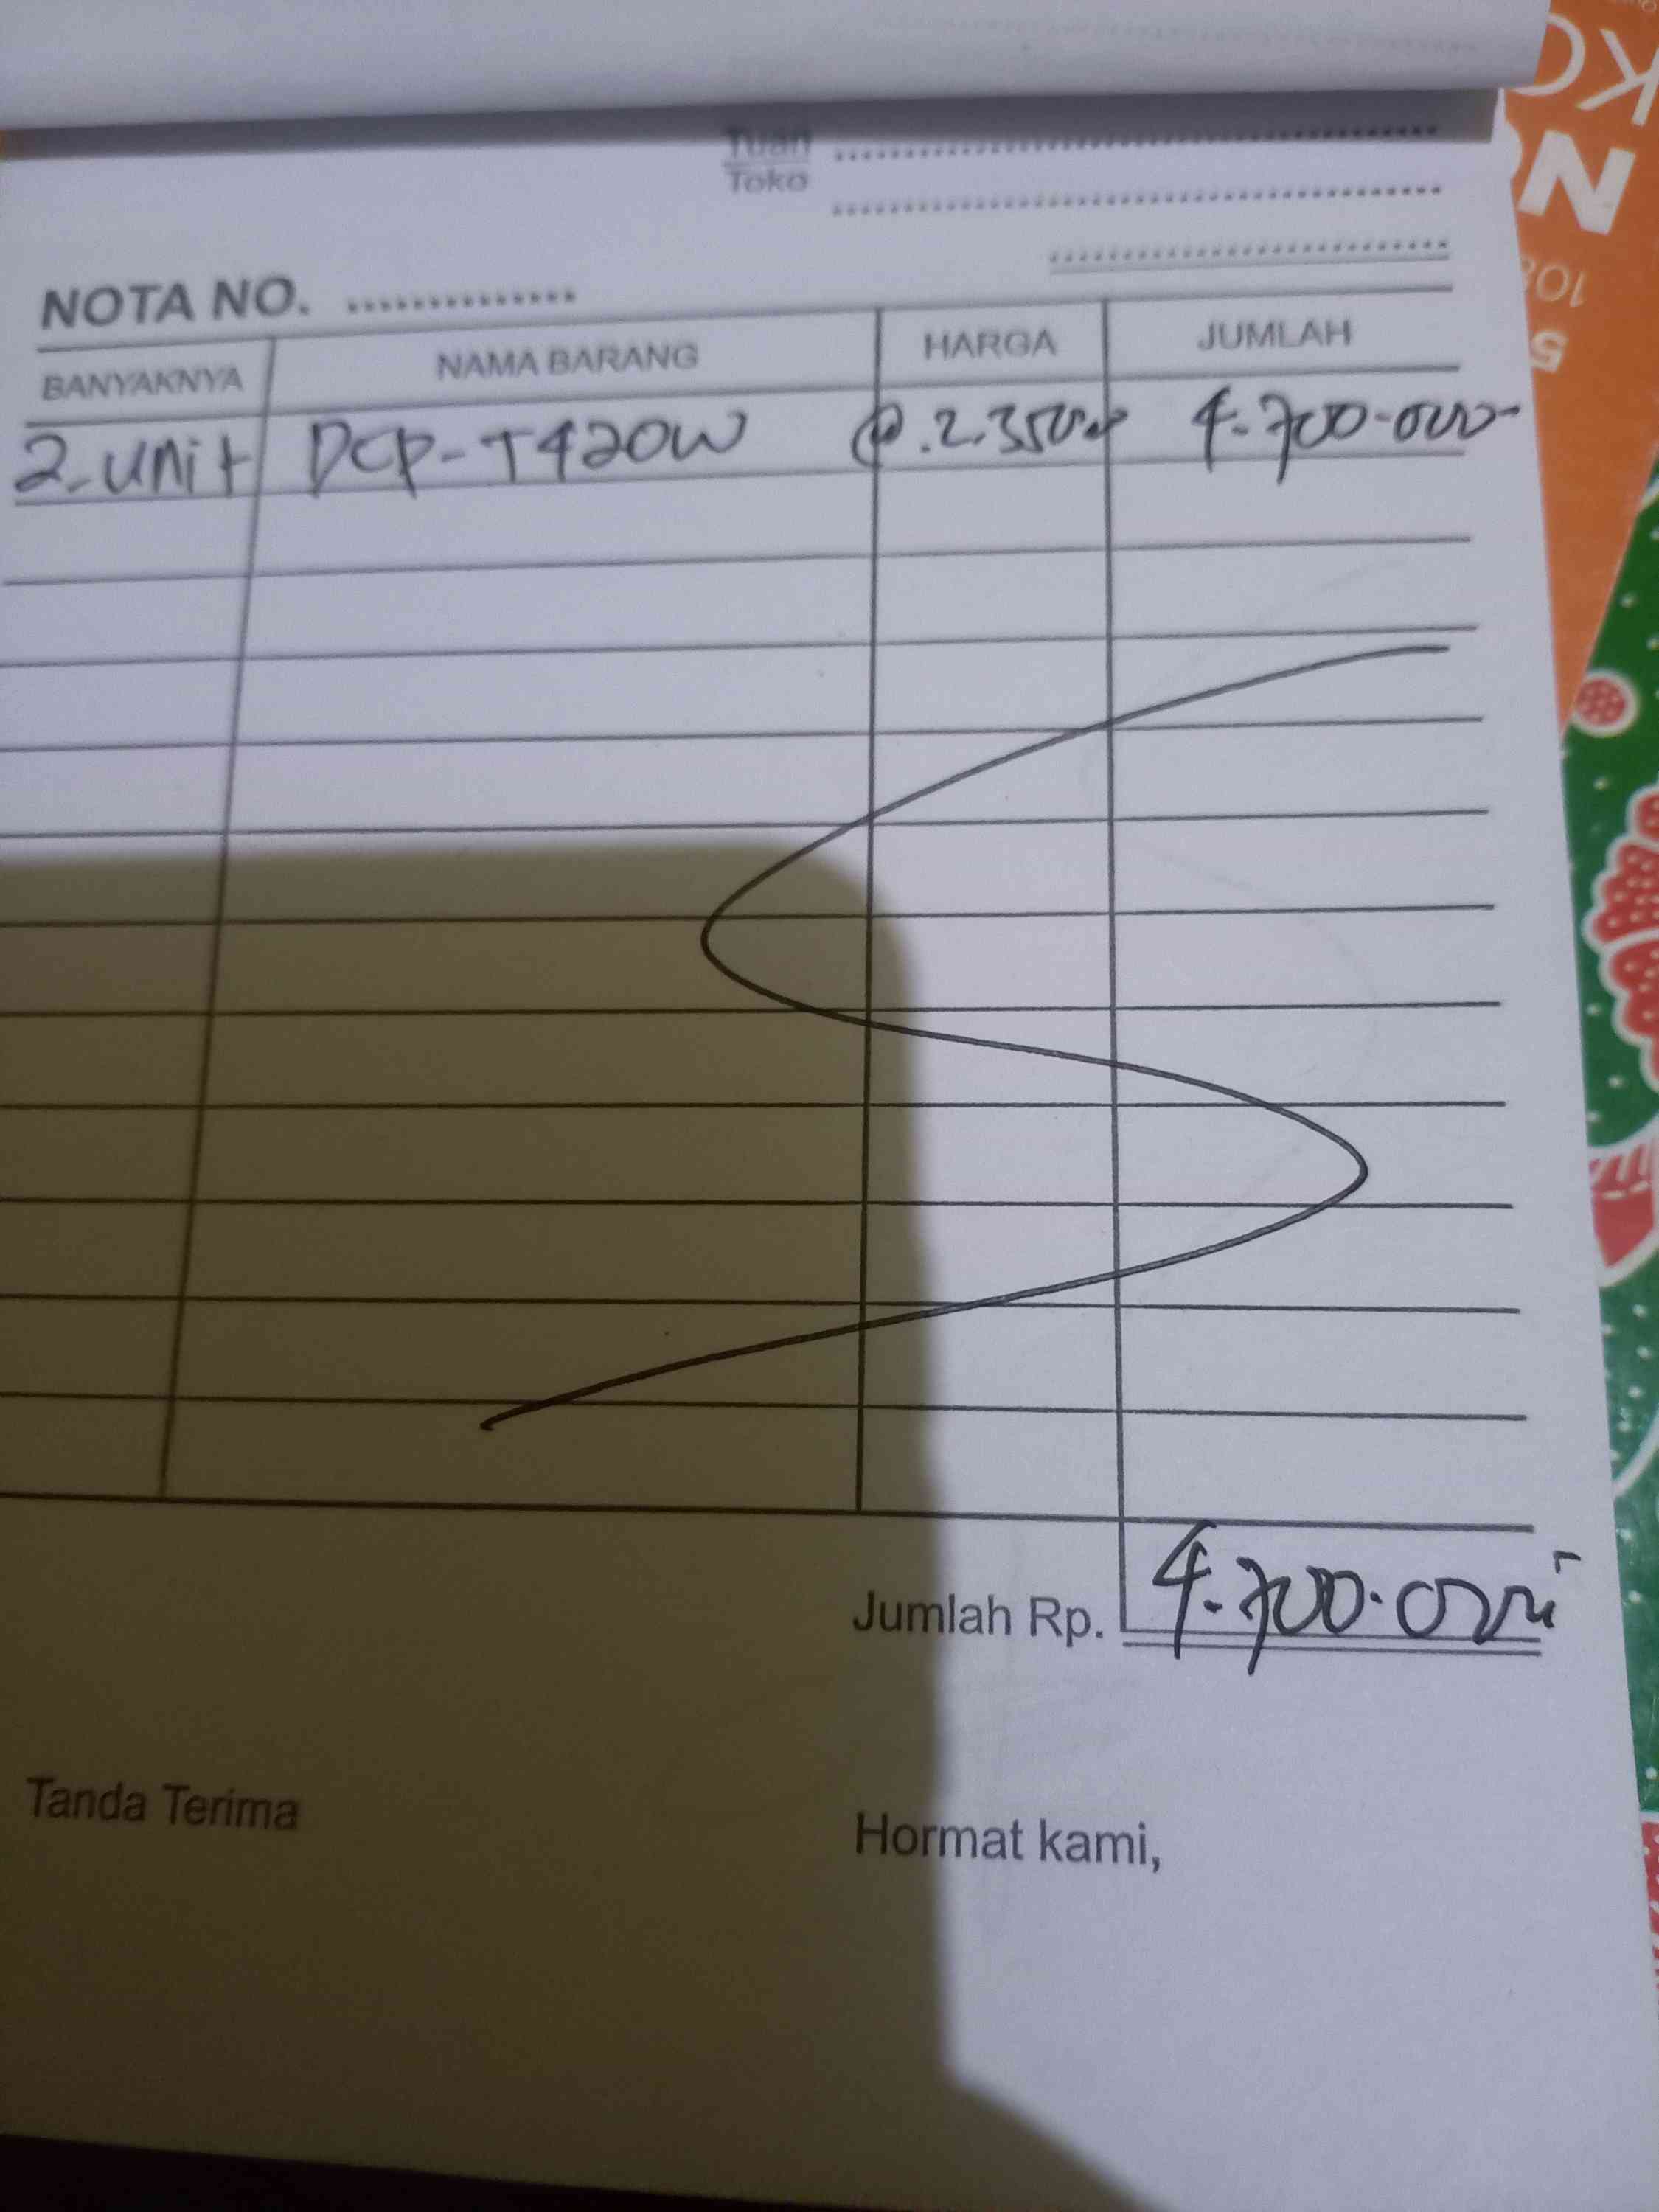 Tuan
Toko
NOTA NO. ..............
BANYAKNYA NAMA BARANG HARGA JUMLAH
2 unit DCP-T420W @.2.350 4.700.000
Jumlah Rp. 4.700.000
Tanda Terima Hormat kami,
KO
NO
108
5